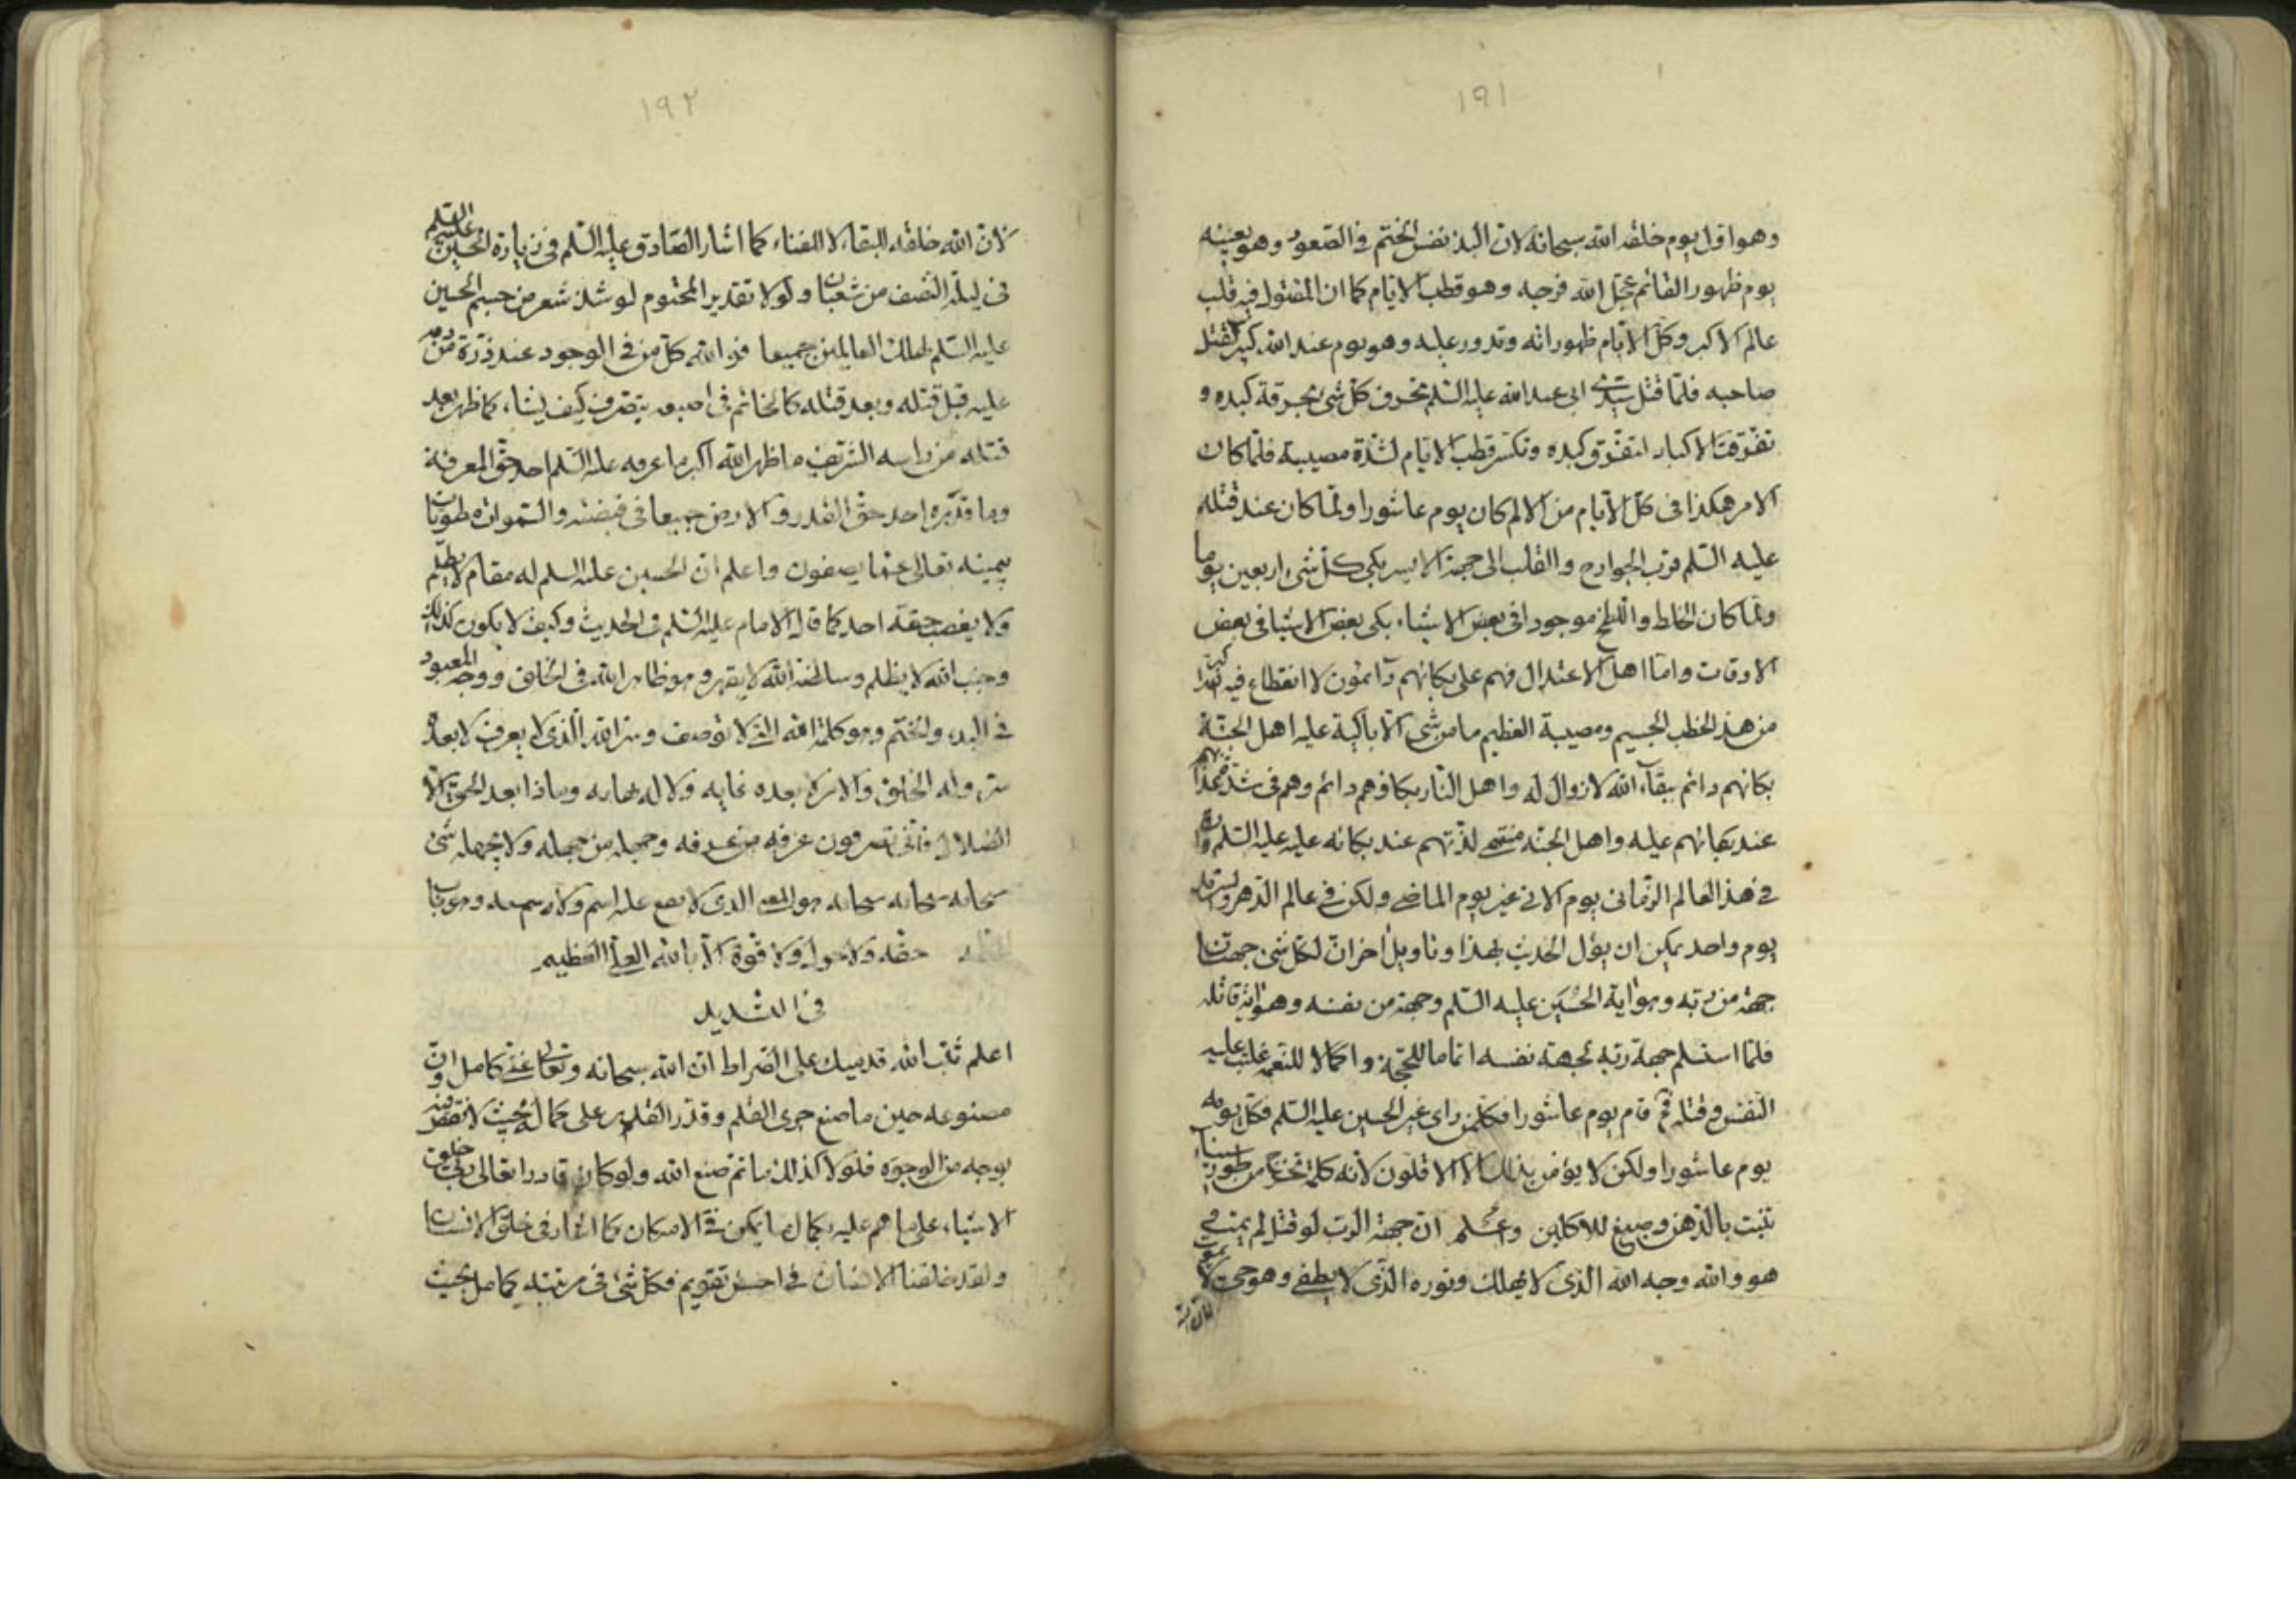 ١٩١
وهو اوّل يوم خلقه الله سبحانه لان البدء نفس الختم فى الصّعود وهو بعينه
يوم ظهور القائم عجّل الله فرجه وهو قطب الايّام كما ان المقتول فيه قلب
عالم الاكبر وكل الايّام ظهوراته وتدور عليه وهو يوم عند الله كبير لقتل
صاحبه فلمّا قتل سيّدى ابى عبد الله عليه السّلم تحرق كلّ شئ بحرقة كبده و
تفرّقت الاكباد لتفرّق كبده وتكسّر قطب الايّام لشدّة مصيبة فلمّا كان
الامر هكذا فى كلّ الايام من الالم كان يوم عاشورا ولمّا كان عند قتله
عليه السّلم قرب الجوارح والقلب الى جهة الايسر بكى كلّ شئ اربعين يوما
ولمّا كان الخلط واللطخ موجودا فى بعض الاشياء بكى بعض الاشيا فى بعض
الاوقات وامّا اهل الاعتدال فهم على بكائهم دآئمون لا انقطاع فيه ابدا
من هذ الخطب الجسيم ومصيبة العظيم ما من شئ الّا باكية عليه اهل الجنّة
بكائهم دائم ببقآء الله لا زوال له واهل النار بكاؤهم دائم وهم فى شدّة عذابهم
عند بكائهم عليه واهل الجنه منتهى لذّتهم عند بكائه عليه عليه السّلم وان
فى هذ العالم الزّمانى يوم الاتى غير يوم الماضى ولكن فى عالم الدّهر والسّرمد
يوم واحد يمكن ان يؤل الحديث بهذا وتاويل اخر انّ لكلّ شئ جهتان
جهة من ربّه وهو اية الحُسَين عليه السّلم وجهة من نفسه وهو اية قاتله
فلمّا استسلم جهة ربّه بجهة نفسه اتماما للحجّة واكمالا للنّعمة غلبت عليه
النّفس وقتله ثمّ قام يوم عاشورا فكلّ من راى غير الحسين عليه السّلم فكلّ يومه
يوم عاشورا ولكن لا يؤمن بذلك الّا الاقلّون لانّه كلمة تخرج من طور سيناء
تنبت بالدّهن وصبغ للاكلين واعلم انّ جهة الربّ لو قتل لم يمت
هو والله وجه الله الذى لا يهلك ونوره الّذى لا يطفى وهو حى لا يموت
لانّ الله
١٩٢
لانّ الله خلقه للبقاء لا للفناء كما اشار الصّادق عليه السّلم فى زيارة الحسين عليه السّلم
فى ليلة النّصف من شعبان ولولا تقدير المحتوم لو شذ شعر من جسم الحسين
عليه السّلم لهلك العالمين جميعا فو الله كلّ من فى الوجود عند ذرّة من دمه
عليه قبل قتله وبعد قتله كالخاتم فى اصبعه يتصرف كيف يشاء كما ظهر بعد
قتله من راسه الشّريف ما ظهر الله اكبر ما عرفه عليه السّلم احد حق المعرفة
وما قدّره احد حقّ القدر والارض جميعا فى قبضته والسّموات مطويات
بيمينه تعالى عمّا يصفون واعلم انّ الحسين عليه السلم له مقام لا يظلم
ولا يغصب حقّه احد كما قال الامام عليه السّلم فى الحديث وكيف لا يكون كذلك
وجنب الله لا يظلم وسلطنة الله لا يقهر وهو ظاهر الله فى الخلق ووجه المعبود
فى البدء والختم وهو كلمة الله الّتى لا توصف وسرّ الله الّذى لا يعرف لا بعده
سرّ وله الخلق والامر لا بعده غايه ولا له نهايه وماذا بعد الحقّ الّا
الضّلال فانّى تصرفون عرفه من عرفه وجهله من جهله ولا يجهله شئ
سبحانه سبحانه سبحانه هو الذى لا يقع عليه اسم ولا رسم
حقّه ولا حول ولا قوّة الّا بالله العلى العظيم
اعلم ثبّت الله قدميك على الصّراط انّ الله سبحانه وتعالى غنىّ كامل وانّ
مصنوعه حين ما صنع جرى القلم وقدّر القلم على كمال بحيث لا نقص فيه
بوجه من الوجوه فلولا كذلك ما تمّ صنع الله ولو كان قادرا تعالى خلق
الاشياء على ما هم عليه بكمال ما يمكن فى الامكان كما اشار فى خلق الانسان
ولقد خلقنا الانسان فى احسن تقويم فكلّ شئ فى مرتبته كامل بحيث